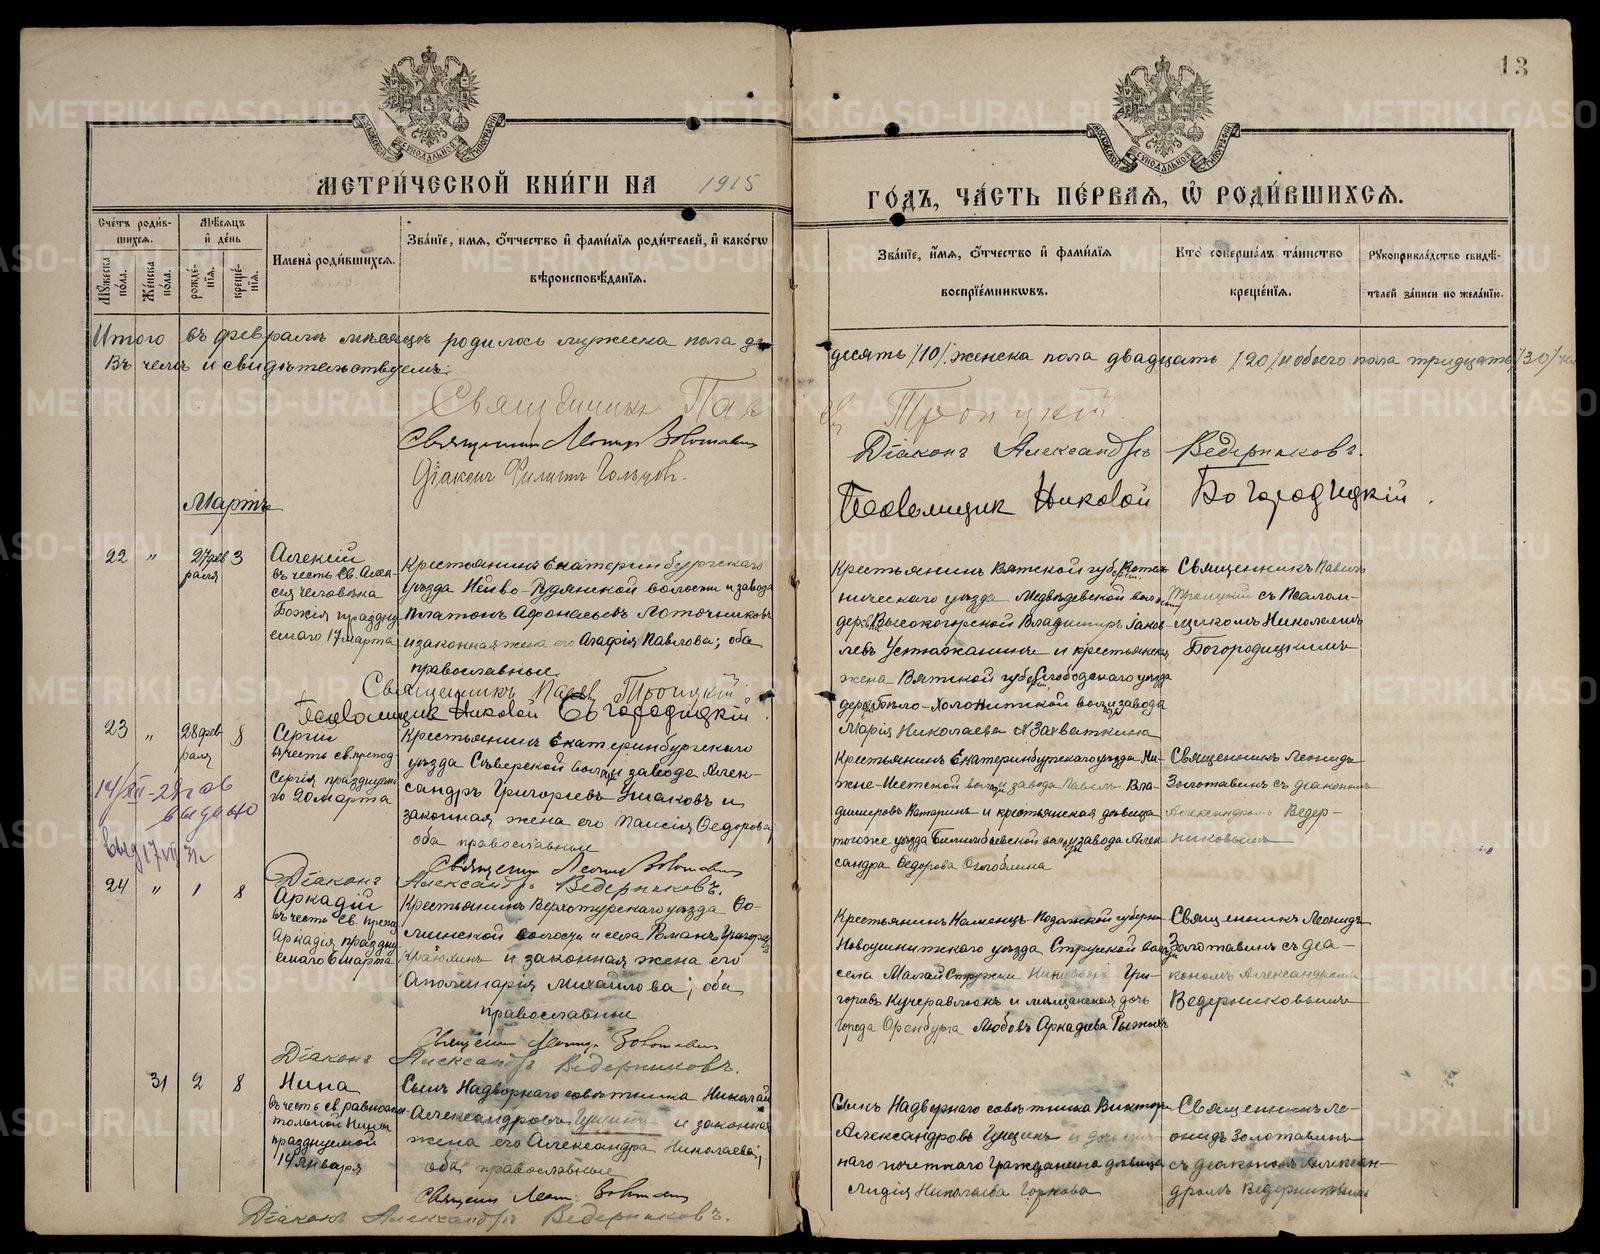 13
МЕТРИ́ЧЕСКОЙ КНИ́ГИ НА 1915 ГО́ДЪ, ЧА́СТЬ ПЕ́РВАЯ, Ѽ РОДИ́ВШИХСЯ.
Сче́тъ роди́вшихся.
Мꙋ́жеска по́ла.
Же́нска по́ла.
Мѣ́сяцъ и҆ де́нь
рожде́нїя.
креще́нїя.
И҆мена̀ роди́вшихся.
Зва́нїе, и҆́мя, ѻ҆́тчество и҆ фами́лїя роди́телей, и҆ како́гѡ вѣроисповѣ́данїя.
Зва́нїе, и҆́мя, ѻ҆́тчество и҆ фами́лїя воспрїе́мникѡвъ.
Кто̀ соверша́лъ та́инство креще́нїя.
Рꙋкоприкла́дство свидѣ́телей за́писи по жела́нїю.
Итого въ февралѣ мѣсяцѣ родилось мужеска пола де
десять /10/ женска пола двадцать /20/ и обоего пола тридцать /30/
Въ чемъ и свидѣтельствуемъ:
Священникъ Павелъ Троицкій.
Священникъ Леонидъ Золотавинъ
Діаконъ Александръ Ведерниковъ.
Діаконъ Филиппъ Гольцовъ.
Псаломщик Николай Богородицкій.
Мартъ
22 " 27 фев раля 3
Алексій
въ честь Св. Алек-
сія Человѣка
Божія праздну
емаго 17 марта
Крестьянинъ Екатеринбургскаго
уѣзда Нейво-Рудянской волости и завода
Платонъ Афонасьевъ Лоточниковъ
и законная жена его Агафія Павлова; оба
православные.
Крестьянинъ Вятской губерн. Котель
ническаго уѣзда Медвѣдевской волости
дерев. Высокогорской Владиміръ Іаков
левъ Устюжанинъ и крестьянская
жена Вятской губ. Слободскаго уѣзда
Холоницкой вол. и завода
Марія Николаева Захваткина
Священникъ Павелъ
Троицкій съ Псалом-
щикомъ Николаемъ
Богородицкимъ
Священникъ Павелъ Троицкій.
Псаломщик Николай Богородицкій.
23 " 28 фев раля 8
Сергій
въ честь св. препод
Сергія празднуем
го 20 марта
Крестьянинъ Екатеринбургскаго
уѣзда Сѣверской вол. и завода Алек-
сандръ Григорьевъ Ушаковъ и
законная жена его Таисія Ѳедорова,
оба православные
Крестьянинъ Екатеринбургскаго уѣзда Ни-
жне-Исетской вол. и завода Павелъ Вла-
диміровъ Катаринъ и крестьянская дѣвица
тогоже уѣзда Билимбаевской вол. и завода Алек
сандра Ѳедорова Оглоблина
Священникъ Леонидъ
Золотавинъ съ діакономъ
Александромъ Ведер-
никовымъ
14/XII - 28 год
выдано
выд 17 VII 31 г
Священникъ Леонидъ Золотавинъ
Діаконъ Александръ Ведерниковъ.
24 " 1 8
Аркадій
въ честь св. препод
Аркадія праздну
емаго 6 марта
Крестьянинъ Верхотурскаго уѣзда Фо-
минской волости и села Романъ Григорьев
и законная жена его
Аполинарія Михайлова; оба
православные
Крестьянинъ Каменецъ-Подольской губерн
Новоушитскаго уѣзда Стружской вол.
села Малай Стружки Никифоръ Гри-
горьевъ Кучеравлюкъ и мѣщанская дочь
города Оренбурга Любовь Аркадьева
Священникъ Леонидъ
Золотавинъ съ діа-
кономъ Александромъ
Ведерниковымъ
Священ Леонидъ Золотавинъ
Діаконъ Александръ Ведерниковъ.
31 2 8
Нина
въ честь св. равноапос
тольной Нины
празднуемой
14 января
Сынъ Надворнаго совѣтника Николай
Александровъ Гущинъ и законная
жена его Александра Николаева;
оба православные
Сынъ Надворнаго совѣтника Викторъ
Александровъ Гущинъ и дочь лич-
наго почетнаго Гражданина дѣвица
Лидія Николаева Горнова
Священникъ Ле-
онидъ Золотавинъ
съ діакономъ Алексан-
дромъ Ведерниковымъ
Священ Леон. Золотавинъ
Діаконъ Александръ Ведерниковъ.
METRIKI.GASO-URAL.RU